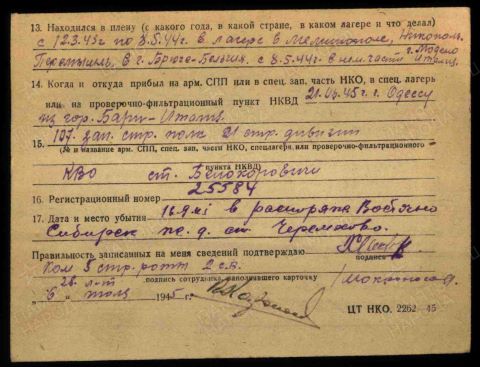 13. Находился в плену (с какого года, в какой стране, в каком лагере и что делал)
с 12.3.43г по 8.5.44г. в лагере в Мелитополе, Никополь
Перемышль, в г. Брюге-Бельгия, с 8.5.44г. в нем. части г. Модено Италия.
14. Когда и откуда прибыл на арм. СПП или в спец. зап. часть НКО, в спец. лагерь
или на проверочно-фильтрационный пункт НКВД 21.04.45г. г. Одессу
из гор. Бари-Италия.
107. зап. стр. полк 21 стр. дивизии
15. (№ и название арм. СПП, спец. зап. части НКО, спецлагеря или проверочно-фильтрационного
пункта НКВД)
КВО ст. Белокоровичи
16. Регистрационный номер 25584
17. Дата и место убытия в распоряж Восточно
Сибирск ж. д. ст Черемхово.
Правильность записанных на меня сведений подтверждаю
подпись
Ком 5 стр. роты 2 с.б.
подпись сотрудника, заполнявшего карточку
1945 г.
ЦТ НКО. 2262—45